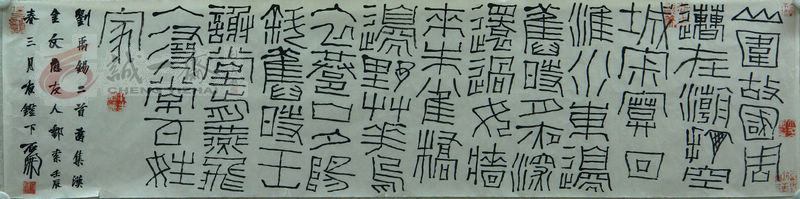 山圍故國周
遭在潮打空
城寂寞回
淮水東邊
舊時月夜深
還過女牆
來朱雀橋
邊野艸花烏
衣巷口夕陽
斜舊時王
謝堂前燕飛
入尋常百姓
家
劉禹錫二首集漢
金文應友人索壬辰
春三月夜鐙下